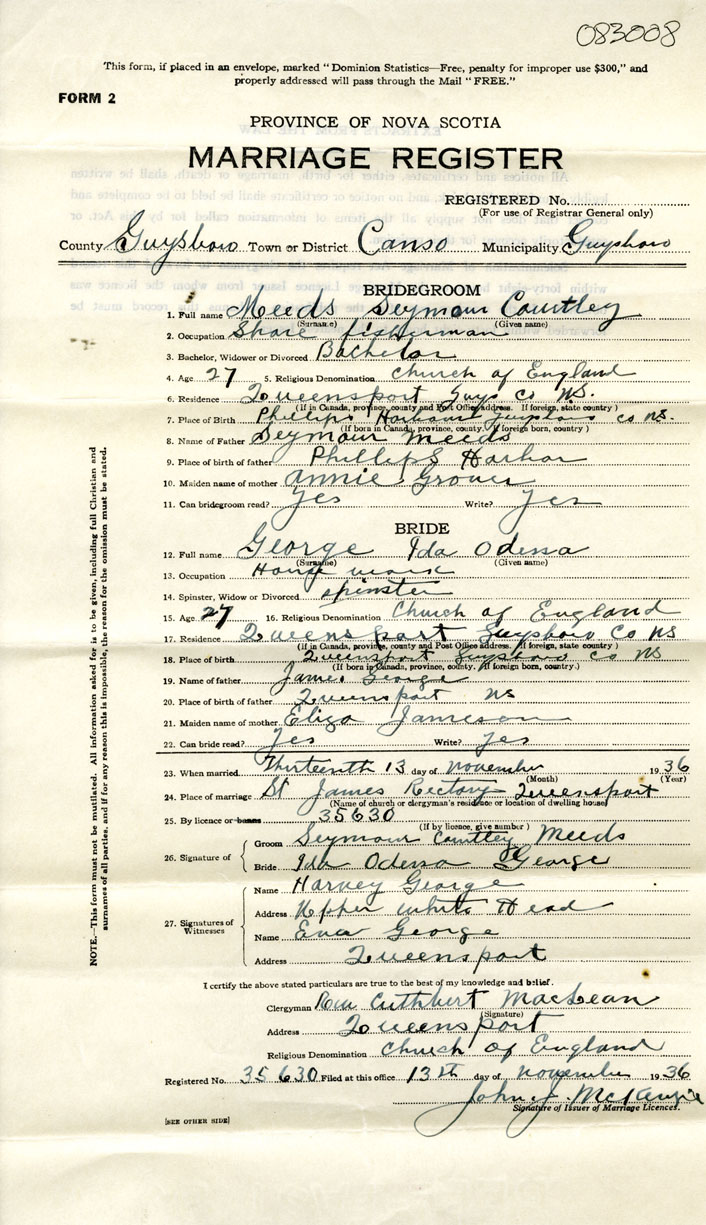 083008
This form, if placed in an envelope, marked "Dominion Statistics—Free, penalty for improper use $300," and
properly addressed will pass through the Mail "FREE."
FORM 2
PROVINCE OF NOVA SCOTIA
MARRIAGE REGISTER
REGISTERED No.
(For use of Registrar General only)
County Guysboro Town or District Canso Municipality Guysboro
BRIDEGROOM
1. Full name Meeds Seymour Courtley
(Surname) (Given name)
2. Occupation Shore fisherman
3. Bachelor, Widower or Divorced Bachelor
4. Age 27 5. Religious Denomination Church of England
6. Residence Queensport Guys Co NS.
(If in Canada, province, county and Post Office address. If foreign, state country)
7. Place of Birth Phillips Harbour Guysboro co NS.
(If born in Canada, province, county. If foreign born, country)
8. Name of Father Seymour Meeds
9. Place of birth of father Phillips Harbor
10. Maiden name of mother Annie Grover
11. Can bridegroom read? Yes Write? Yes
BRIDE
12. Full name George Ida Odessa
(Surname) (Given name)
13. Occupation House work
14. Spinster, Widow or Divorced spinster
15. Age 27 16. Religious Denomination Church of England
17. Residence Queensport Guysboro Co NS
(If in Canada, province, county and Post Office address. If foreign, state country)
18. Place of birth Queensport Guysboro co NS
(If born in Canada, province, county. If foreign born, country.)
19. Name of father James George
20. Place of birth of father Queensport NS
21. Maiden name of mother Eliza Jameson
22. Can bride read? Yes Write? Yes
23. When married Thirteenth 13 day of November 1936
(Month) (Year)
24. Place of marriage St James Rectory Queensport
(Name of church or clergyman's residence or location of dwelling house)
25. By licence or banns 35630
(If by licence, give number)
26. Signature of Groom Seymour Courtley Meeds
Bride Ida Odessa George
27. Signatures of Witnesses Name Harvey George
Address Upper White Head
Name Eva George
Address Queensport
I certify the above stated particulars are true to the best of my knowledge and belief.
Clergyman Rev Cuthbert MacLean
(Signature)
Address Queensport
Religious Denomination Church of England
Registered No. 35630 Filed at this office 13th day of November 1936
John J. McKenzie
Signature of Issuer of Marriage Licences.
[SEE OTHER SIDE]
NOTE.—This form must not be mutilated. All information asked for is to be given, including full Christian and
surnames of all parties, and if for any reason this is impossible, the reason for the omission must be stated.